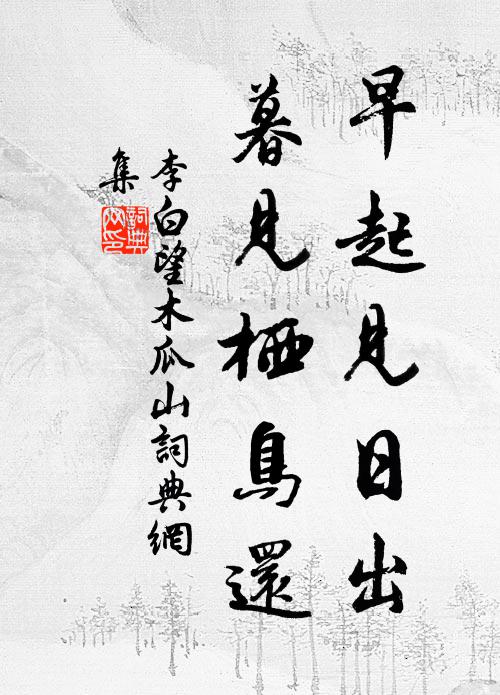 早起見日出
暮見栖鳥還
李白望木瓜山詞典網
集
詞典网印